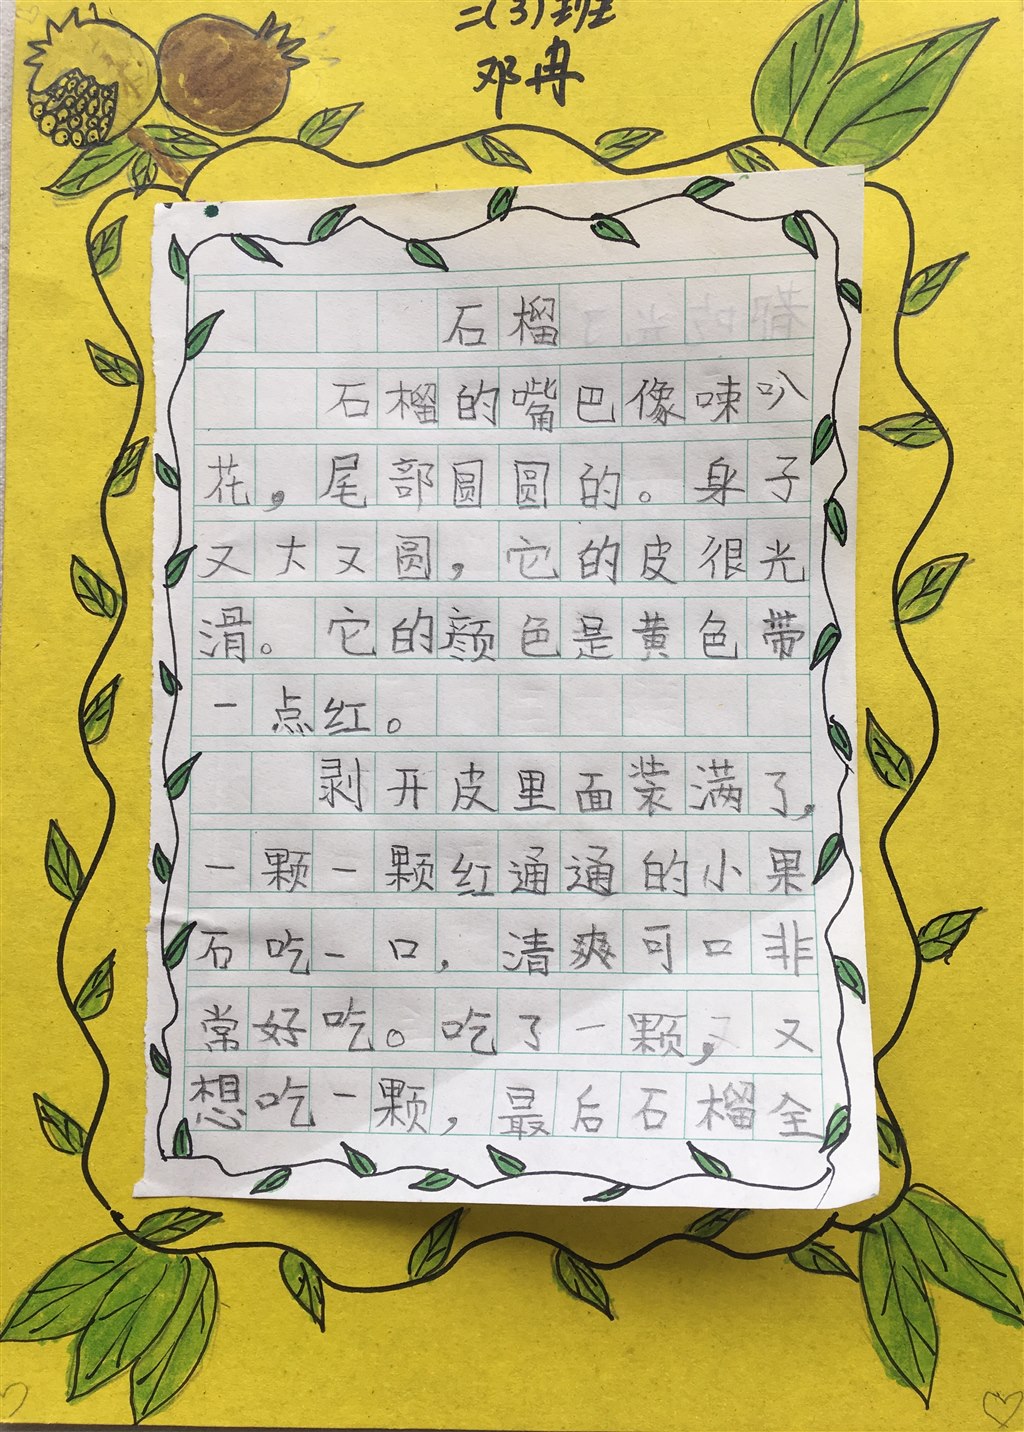 二(3)班
邓冉
石榴
石榴的嘴巴像喇叭
花，尾部圆圆的。身子
又大又圆，它的皮很光
滑。它的颜色是黄色带
一点红。
剥开皮里面装满了，
一颗一颗红通通的小果
石吃一口，清爽可口非
常好吃。吃了一颗，又
想吃一颗，最后石榴全